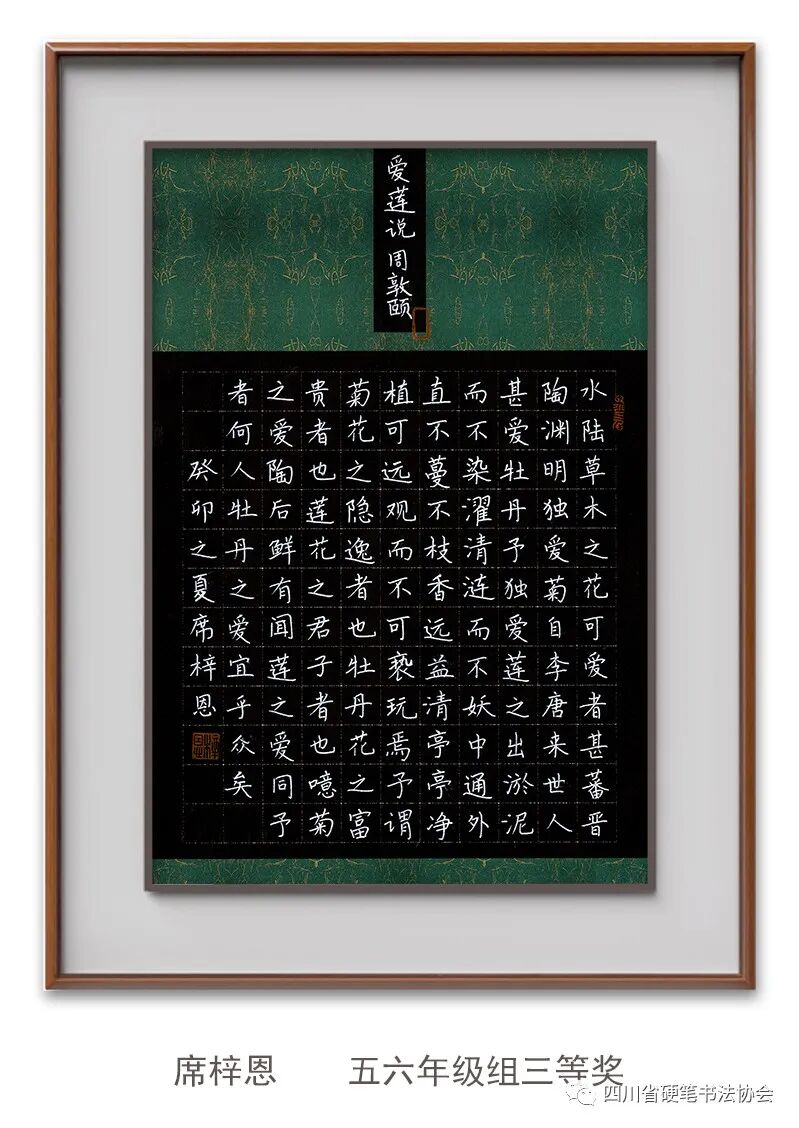 爱莲说 周敦颐
水陆草木之花可爱者甚蕃晋
陶渊明独爱菊自李唐来世人
甚爱牡丹予独爱莲之出淤泥
而不染濯清涟而不妖中通外
直不蔓不枝香远益清亭亭净
植可远观而不可亵玩焉予谓
菊花之隐逸者也牡丹花之富
贵者也莲花之君子者也噫菊
之爱陶后鲜有闻莲之爱同予
者何人牡丹之爱宜乎众矣
癸卯之夏席梓恩
席梓恩 五六年级组三等奖
四川省硬笔书法协会